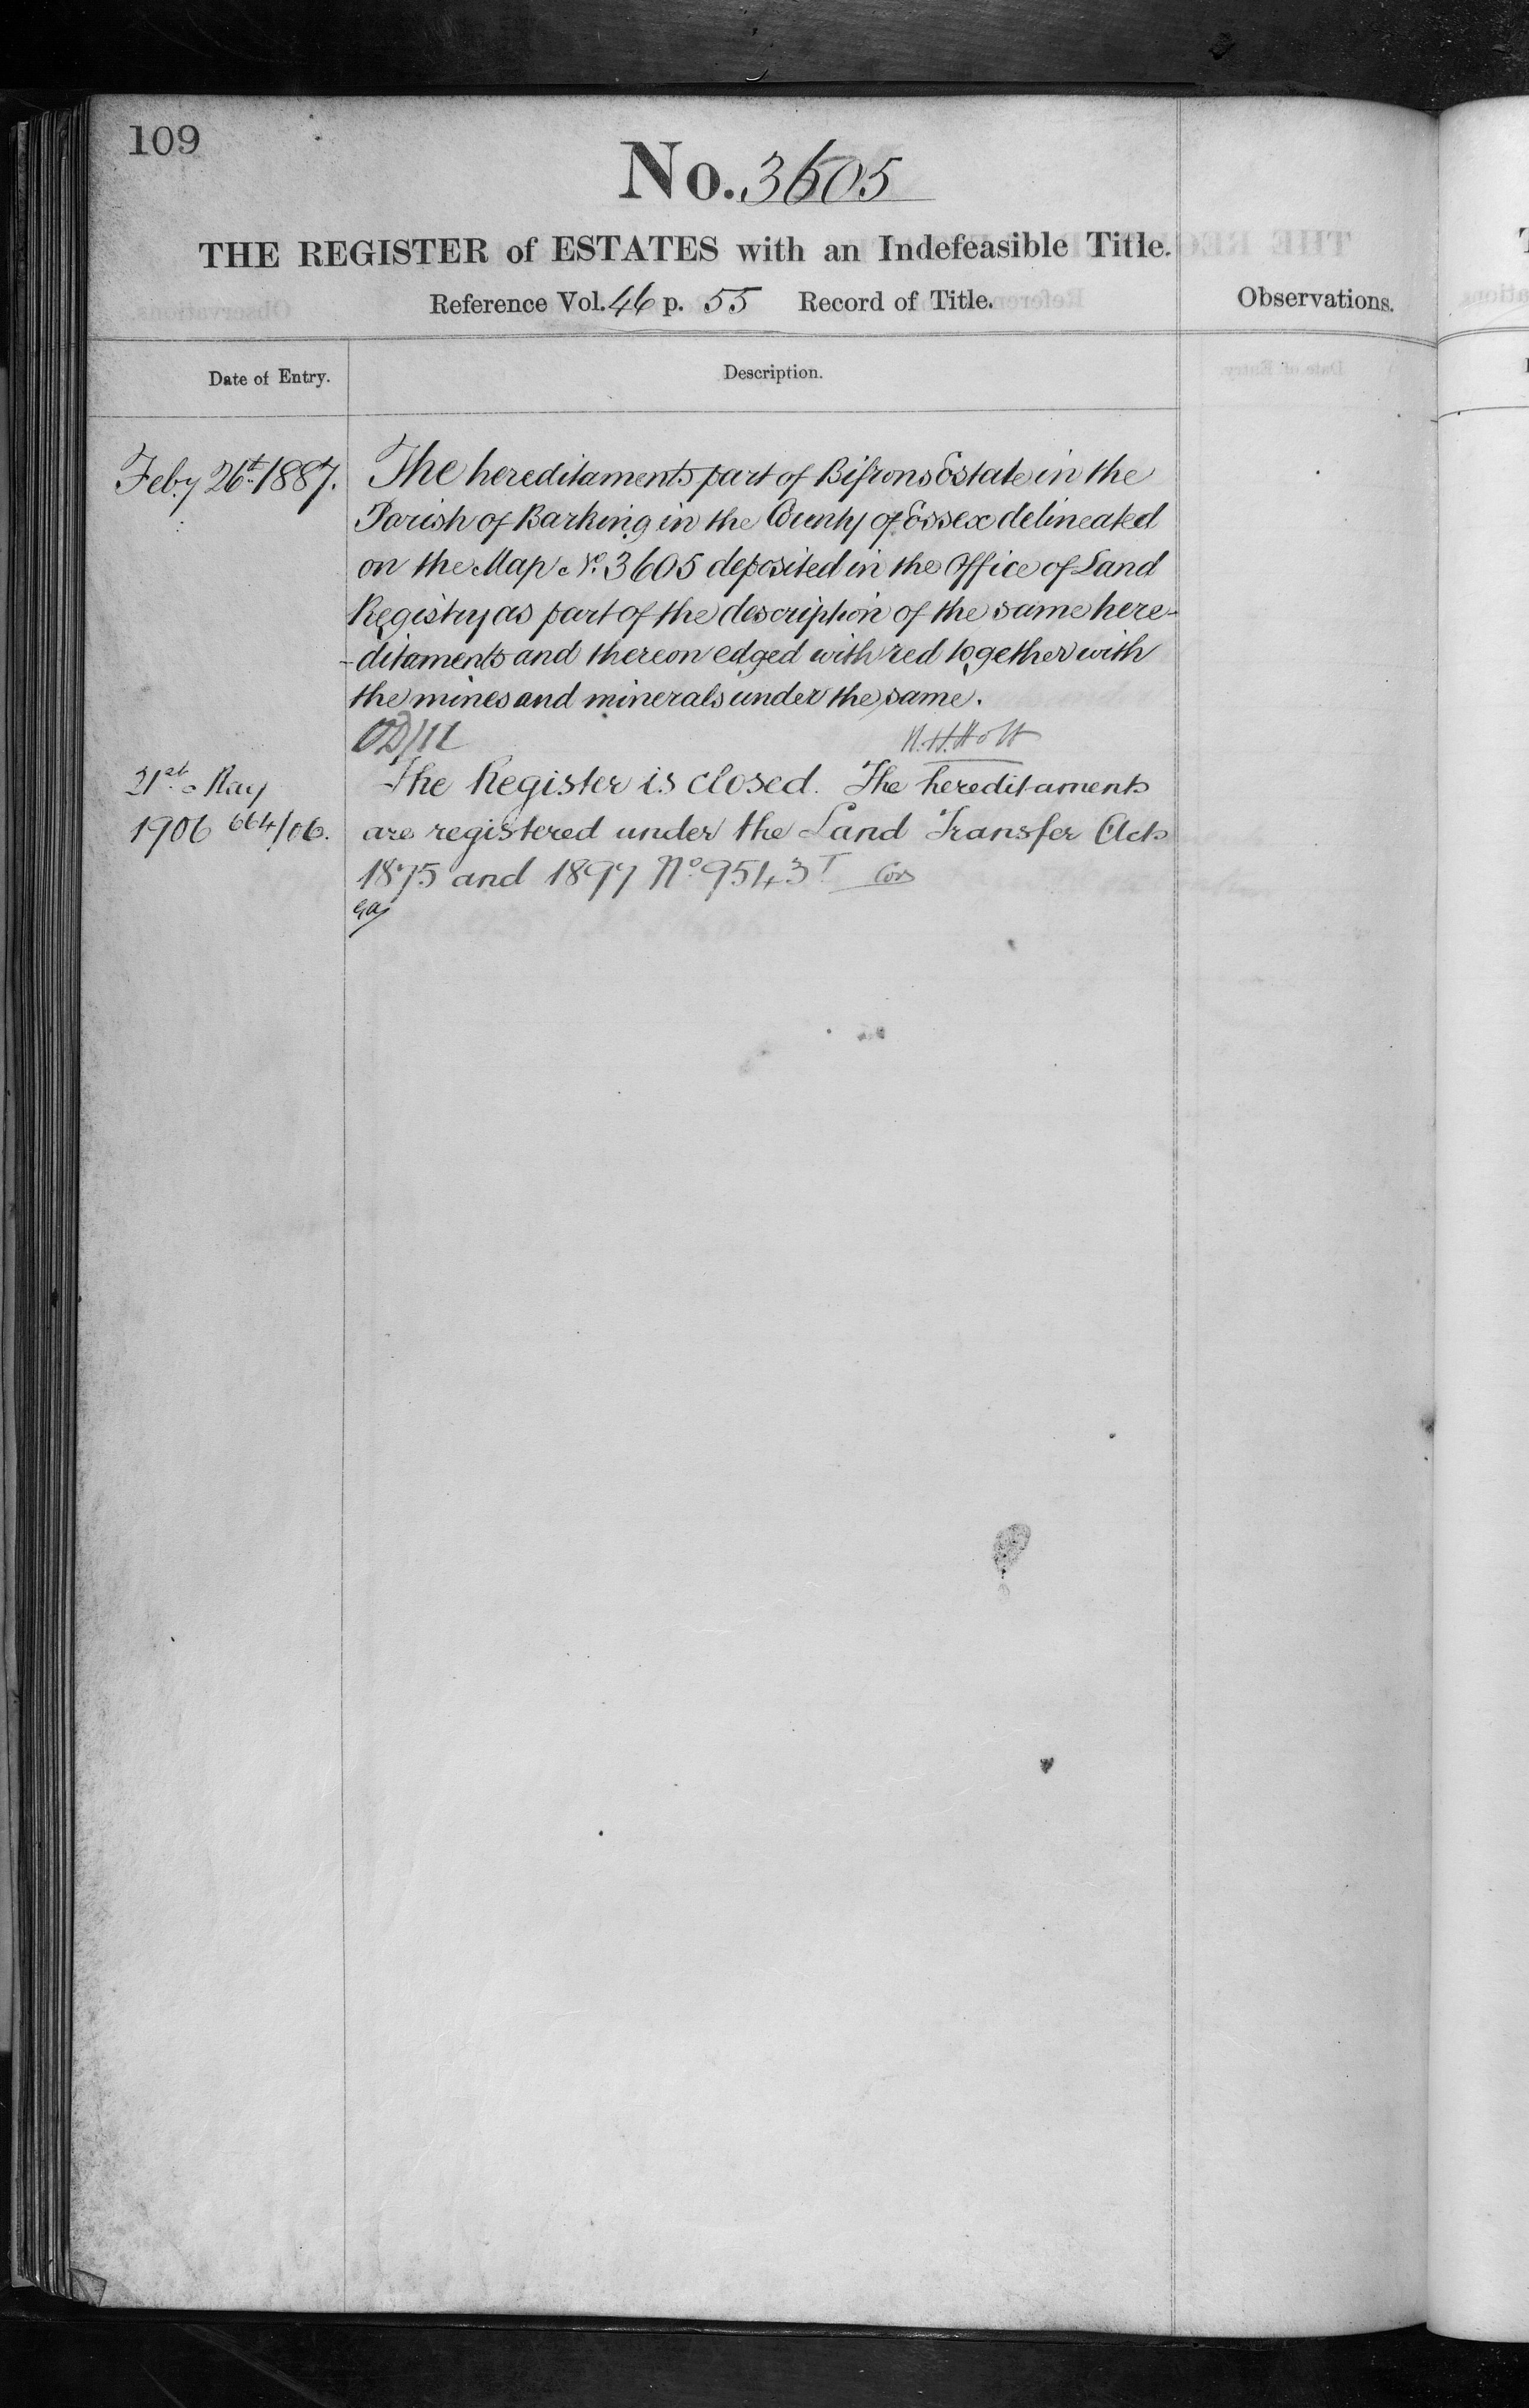 109
No. 3605
THE REGISTER of ESTATES with an Indefeasible Title.
Reference Vol. 46 p. 55 Record of Title.
Observations.
Date of Entry.
Description.
Feby 26th 1887.
The hereditaments part of Bifrons Estate in the
Parish of Barking in the County of Essex delineated
on the Map No. 3605 deposited in the Office of Land
Registry as part of the description of the same here-
-ditaments and thereon edged with red together with
the mines and minerals under the same.
H. H. Holt
21st May
1906 664/06.
The Register is closed. The hereditaments
are registered under the Land Transfer Acts
1875 and 1897 No 9543